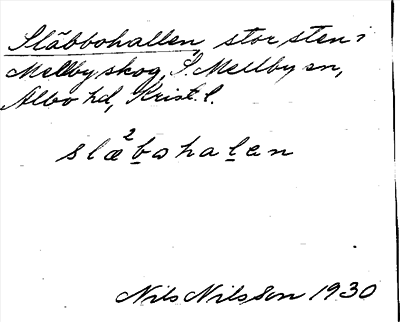 Släbbohallen, stor sten i
Mellby skog, S. Mellby sn,
Albo hd, Krist. l.
slæ²bohalen
Nils Nilsson 1930